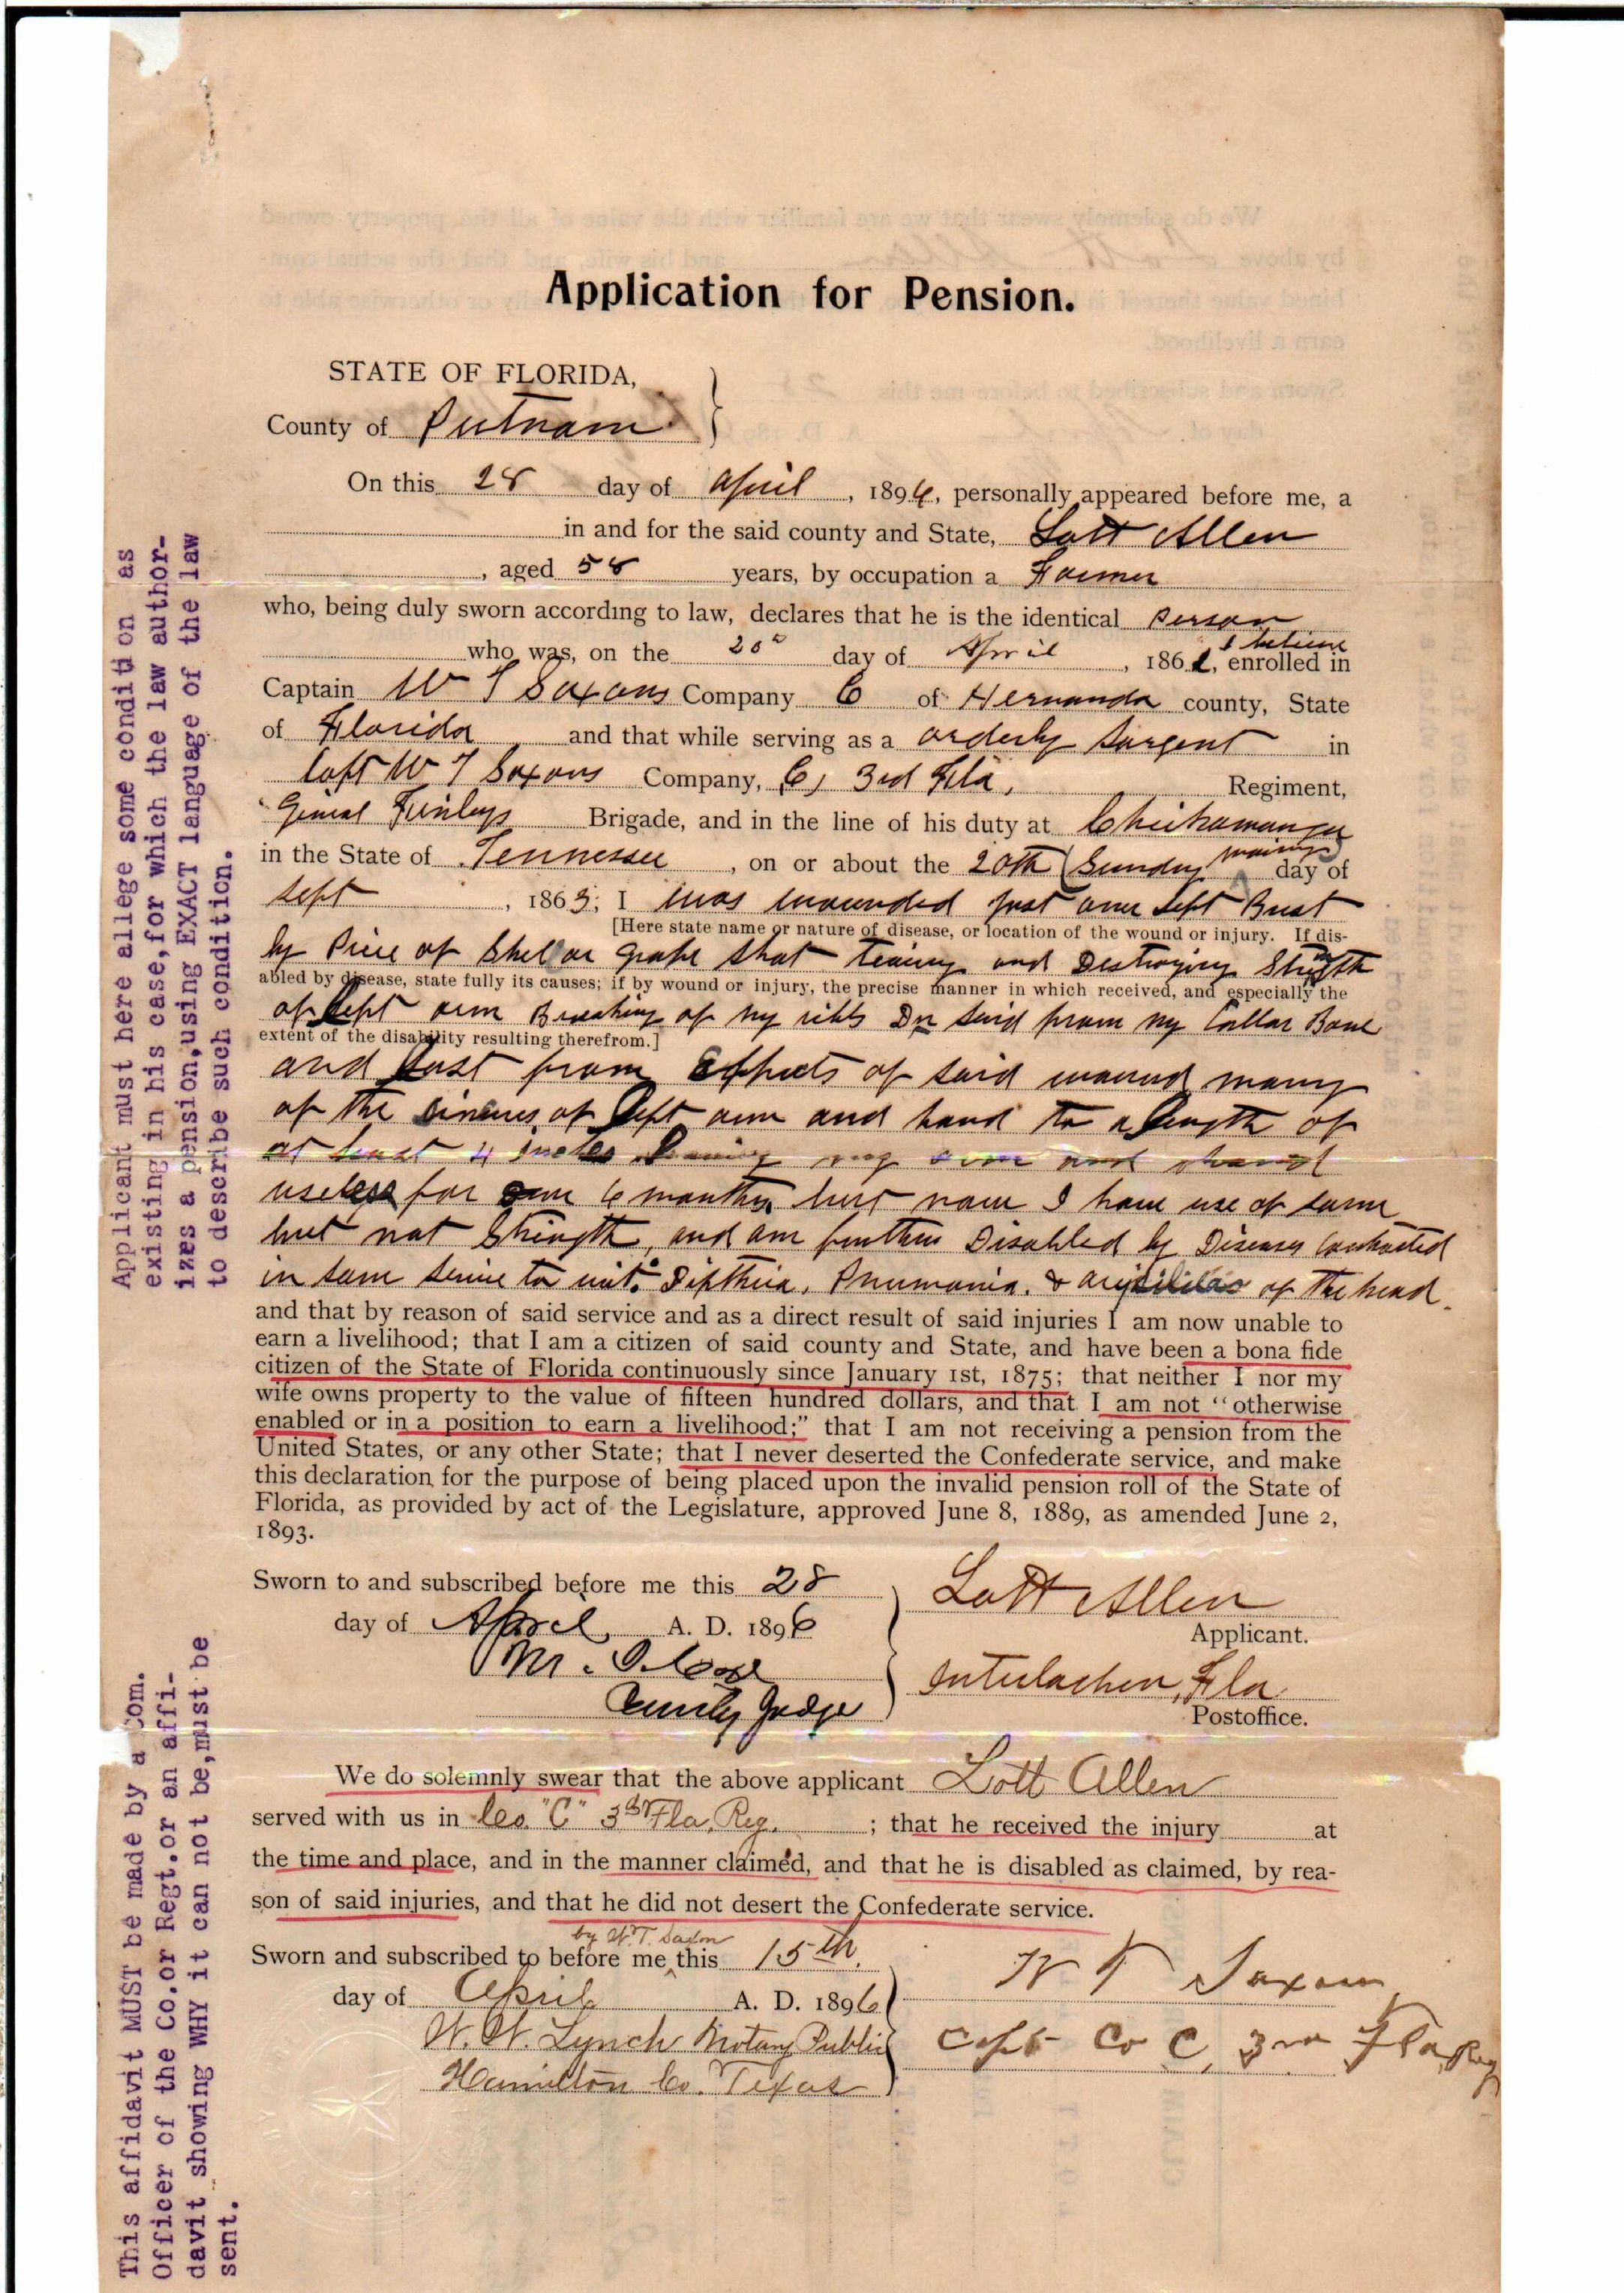 Application for Pension.
STATE OF FLORIDA,
County of Putnam
On this 28 day of April, 1896, personally appeared before me, a
in and for the said county and State, Lott Allen
, aged 58 years, by occupation a Farmer
who, being duly sworn according to law, declares that he is the identical person
I believe
who was, on the 20th day of April, 1861, enrolled in
Captain W T Saxons Company C of Hernando county, State
of Florida and that while serving as a orderly Sargent in
Capt W T Saxons Company, C, 3rd Fla, Regiment,
Genral Finleys Brigade, and in the line of his duty at Chickamauga
in the State of Tennessee, on or about the 20th (Sunday morning) day of
Sept, 1863; I was wounded just over Left Brest
[Here state name or nature of disease, or location of the wound or injury. If dis-
by Piece of Shel or grape shot teairing and Destroying Strength
abled by disease, state fully its causes; if by wound or injury, the precise manner in which received, and especially the
of Left arm Breaking of my ribs On Said from my Collar Bone
extent of the disability resulting therefrom.]
and Lost from Effects of said wound many
of the sinews of Left arm and hand to a Length of
at least 4 inches my arm and hand
useless for over 6 months but now I have use of same
but not Strength, and am further Disabled by Diseases Contracted
in same service to wit: Diptheia, Pnumonia, & of the head.
and that by reason of said service and as a direct result of said injuries I am now unable to
earn a livelihood; that I am a citizen of said county and State, and have been a bona fide
citizen of the State of Florida continuously since January 1st, 1875; that neither I nor my
wife owns property to the value of fifteen hundred dollars, and that I am not "otherwise
enabled or in a position to earn a livelihood;" that I am not receiving a pension from the
United States, or any other State; that I never deserted the Confederate service, and make
this declaration for the purpose of being placed upon the invalid pension roll of the State of
Florida, as provided by act of the Legislature, approved June 8, 1889, as amended June 2,
1893.
Sworn to and subscribed before me this 28
day of April, A. D. 1896
County Judge
Lott Allen
Applicant.
Interlachen, Fla
Postoffice.
We do solemnly swear that the above applicant Lott Allen
served with us in Co. "C" 3rd Fla. Reg.; that he received the injury at
the time and place, and in the manner claimed, and that he is disabled as claimed, by rea-
son of said injuries, and that he did not desert the Confederate service.
by W.T. Saxon
Sworn and subscribed to before me ^ this 15th.
day of April A. D. 1896
W. W. Lynch Notary Public
Hamilton Co. Texas
W T Saxon
Capt Co C, 3rd Fla Reg
Applicant must here allege some condition as
existing in his case,for which the law author-
izes a pension,using EXACT language of the law
to describe such condition.
This affidavit MUST be made by a Com.
Officer of the Co.or Regt.or an affi-
davit showing WHY it can not be,must be
sent.